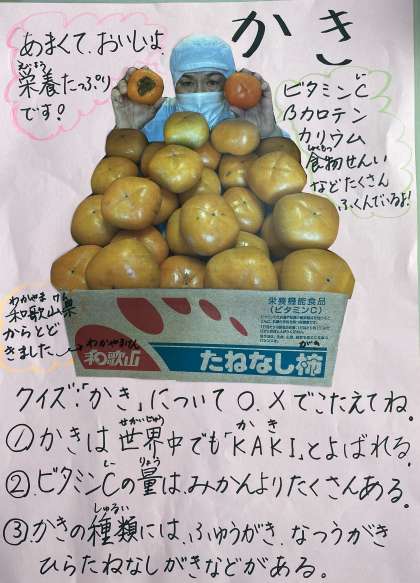 かき
あまくて、おいしよ
えいよう
栄養たっぷり
です!
ビタミンC
シー
Bカロテン
カリウム
しょくもつ
食物せんい
などたくさん
ふくんでいるよ!
わかやま けん
和歌山県
からとど
きました
わかやまけん
和歌山
栄養機能食品
(ビタミンC)
がき
たねなし柿
クイズ:「かき」について○、×でこたえてね。
せかいじゅう か き
①かきは世界中でも「KAKI」とよばれる。
シー りょう
②ビタミンCの量は、みかんよりたくさんある。
しゅるい
③かきの種類には、ふゆうがき、なつうがき
ひらたねなしがきなどがある。